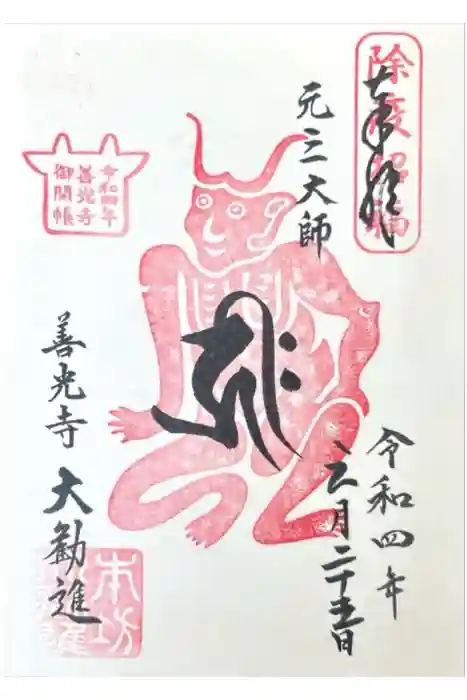 除疫招福
奉拝
元三大師
令和四年
善光寺
御開帳
令和四年
月二十五日
善光寺
大勧進
本坊